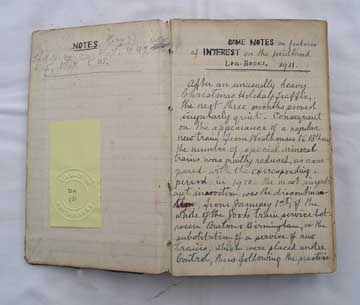 NOTES.
SOME NOTES on features
of INTEREST on the
LOG-BOOKS. 1911.
After an unusually heavy
Christmas Holiday traffic,
the next three months proved
singularly quiet. Consequent
on the appearance of a regular
new train from Westhouses to
the number of special mineral
trains was greatly reduced, as com-
pared with the corresponding
period in 1910. The most import-
ant innovation was the discontinua-
tion, from January 1st, of the
whole of the Goods train service bet-
ween Burton & Birmingham, & the
substitution of a service of new
trains, which were placed under
Control, thus following the practice